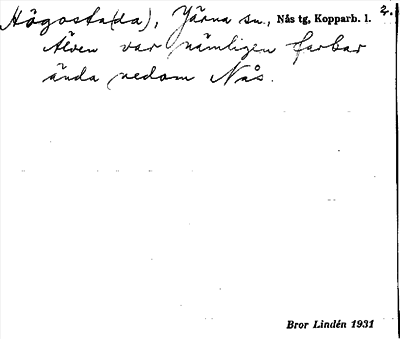 Högosta(da), Järna sn., Nås tg, Kopparb. l. 2.
Älven var nämligen farbar
ända nedom Nås.
Bror Lindén 1931